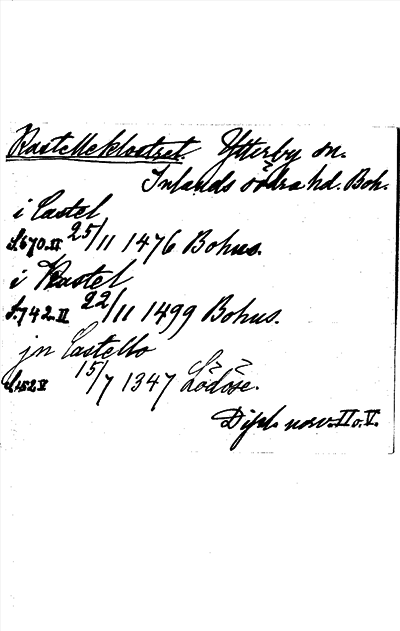 Kastelleklostret. Ytterby sn.
Inlands södra hd. Boh.
i Castel
S.670.II 25/11 1476 Bohus.
i Kastel
S.742.II 22/11 1499 Bohus.
jn Castello
S.152.V 15/7 1347 Lödöse.
Dipl. norv. II o. V.